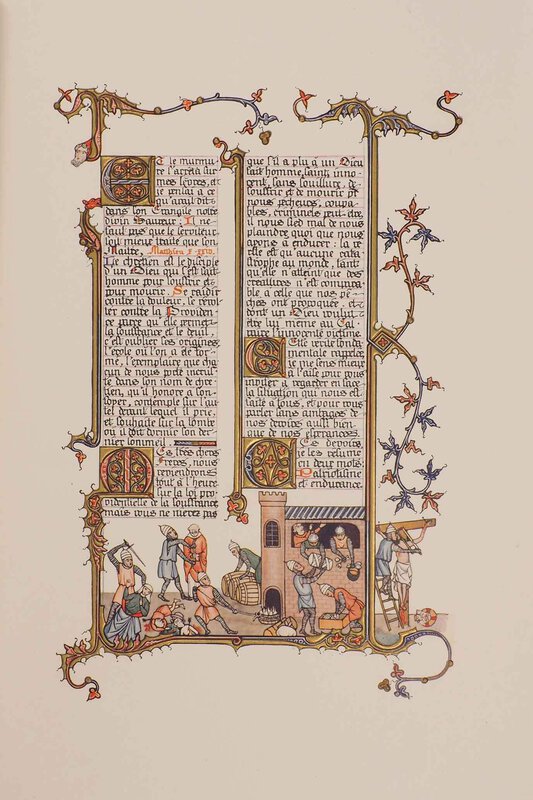 Et le murmu-
re s'arrêta sur
mes lèvres, et
je pensai à ce
qu'avait dit
dans son Evangile notre
divin Sauveur: Il ne
faut pas que le serviteur
soit mieux traité que son
Maître. Matthieu X-XXIV.
Le chrétien est le disciple
d'un Dieu qui s'est fait
homme pour souffrir et
pour mourir. Se raidir
contre la douleur, se révol-
ter contre la Providen-
ce parce qu'elle permet
la souffrance et le deuil,
c'est oublier ses origines,
l'école où l'on a été for-
mé, l'exemplaire que cha-
cun de nous porte incrus-
té dans son nom de chré-
tien, qu'il honore à son
foyer, contemple sur l'au-
tel devant lequel il prie,
et souhaite sur la tombe
où il doit dormir son der-
nier sommeil.
Mes très chers
Frères, nous
reviendrons
tout à l'heure
sur la loi pro-
videntielle de la souffrance,
mais vous ne nierez pas
que s'il a plu à un Dieu
fait homme, saint, inno-
cent, sans souillure, de
souffrir et de mourir pr
nous, pécheurs, coupa-
bles, criminels peut-être,
il nous sied mal de nous
plaindre quoi que nous
ayons à endurer: la vé-
ité est qu'aucune cata-
strophe au monde, tant
qu'elle n'atteint que des
créatures n'est compara-
ble à celle que nos pé-
chés ont provoquée, et
dont un Dieu voulut
être lui même au Cal-
vaire l'innocente victime.
Cette vérité fonda-
mentale rappelée,
je me sens mieux
à l'aise pour vous
inviter à regarder en face
la situation qui nous est
faite à tous, et pour vous
parler sans ambages de
nos devoirs aussi bien
que de nos espérances.
Ces devoirs,
je les résume
en deux mots:
Patriotisme
et endurance.